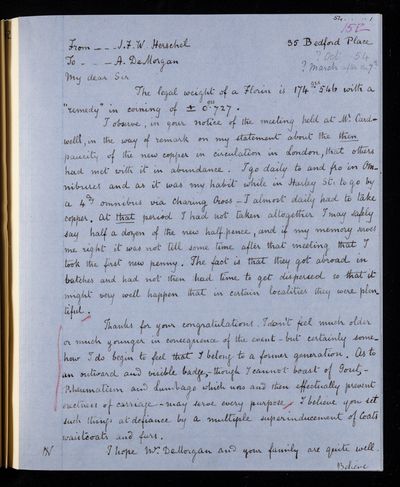 From _ _ J.F.W. Herschel
35 Bedford Place
To _ _ A. DeMorgan
? Oct 54
? March
My dear Sir
The legal weight of a Florin is 174.grs 546 with a
"remedy" in coining of ± 0.grs 727.
I observe, in your notice of the meeting held at Mr Card-
well's, in the way of remark on my statement about the then
paucity of the new copper in circulation in London, that others
had met with it in abundance. I go daily to and fro in Om-
nibuses and as it was my habit while in Harley St. to go by
a 4d omnibus via Charing Cross - I almost daily had to take
copper. At that period I had not taken altogether I may safely
say half a dozen of the new half pence, and if my memory serves
me right it was not till some time after that meeting that I
took the first new penny. The fact is that they got abroad in
batches and had not then had time to get dispersed so that it
might very well happen that in certain localities they were plen
tiful.
Thanks for your congratulations. I don't feel much older
or much younger in consequence of the event - but certainly some-
how I do begin to feel that I belong to a former generation. As to
an outward and visible badge, - though I cannot boast of Gout, -
Rheumatism and Lumbago which now and then effectually prevent
erectness of carriage - may serve every purpose. I believe you set
such things at defiance by a multiple superinducement of Coats
waistcoats and furs.
I hope Mrs DeMorgan and your family are quite well.
Believe